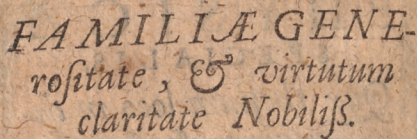 FAMILIÆ GENE-
roſitate, & virtutum
claritate Nobiliß.